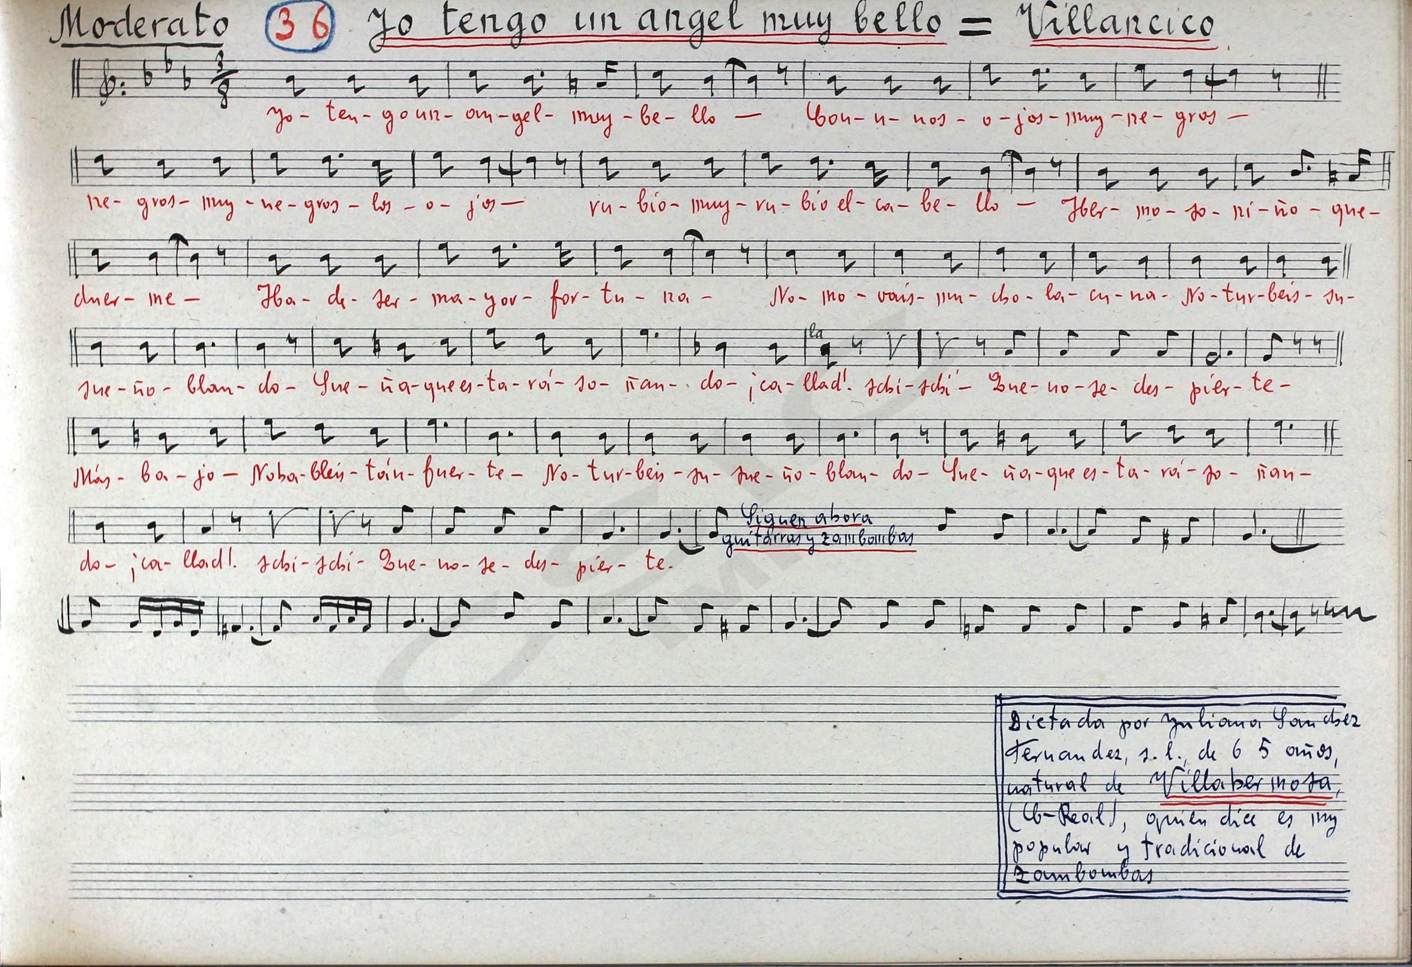 Moderato 36 Yo tengo un angel muy bello = Villancico
3 8
Yo - ten - go un - an - gel - muy - be - llo — Con - u - nos - o - jos - muy - ne - gros —
ne - gros - muy - ne - gros - los - o - jos — ru - bio - muy - ru - bio el - ca - be - llo — Her - mo - so - ni - ño - que -
duer - me — Ha - de - ser - ma - yor - for - tu - na - No - mo - vais - mu - cho - la - cu - na - No - tur - beis - su -
la
sue - ño - blan - do - Sue - ña - que es - ta - rá - so - ñan - do - ¡ca - llad! schi - schi - Que - no - se - des - pier - te -
Más - ba - jo - No ha - bleis - tán - fuer - te - No - tur - beis - su - sue - ño - blan - do - Sue - ña - que es - ta - rá - so - ñan -
Siguen ahora
guitarras y zambombas
do - ¡ca - llad! schi - schi - Que - no - se - des - pier - te.
Dictada por Juliana Sanchez
Fernandez, s. l., de 65 años,
natural de Villahermosa,
(Cb-Real), quien dice es muy
popular y tradicional de
zambombas
CSIC
IMF